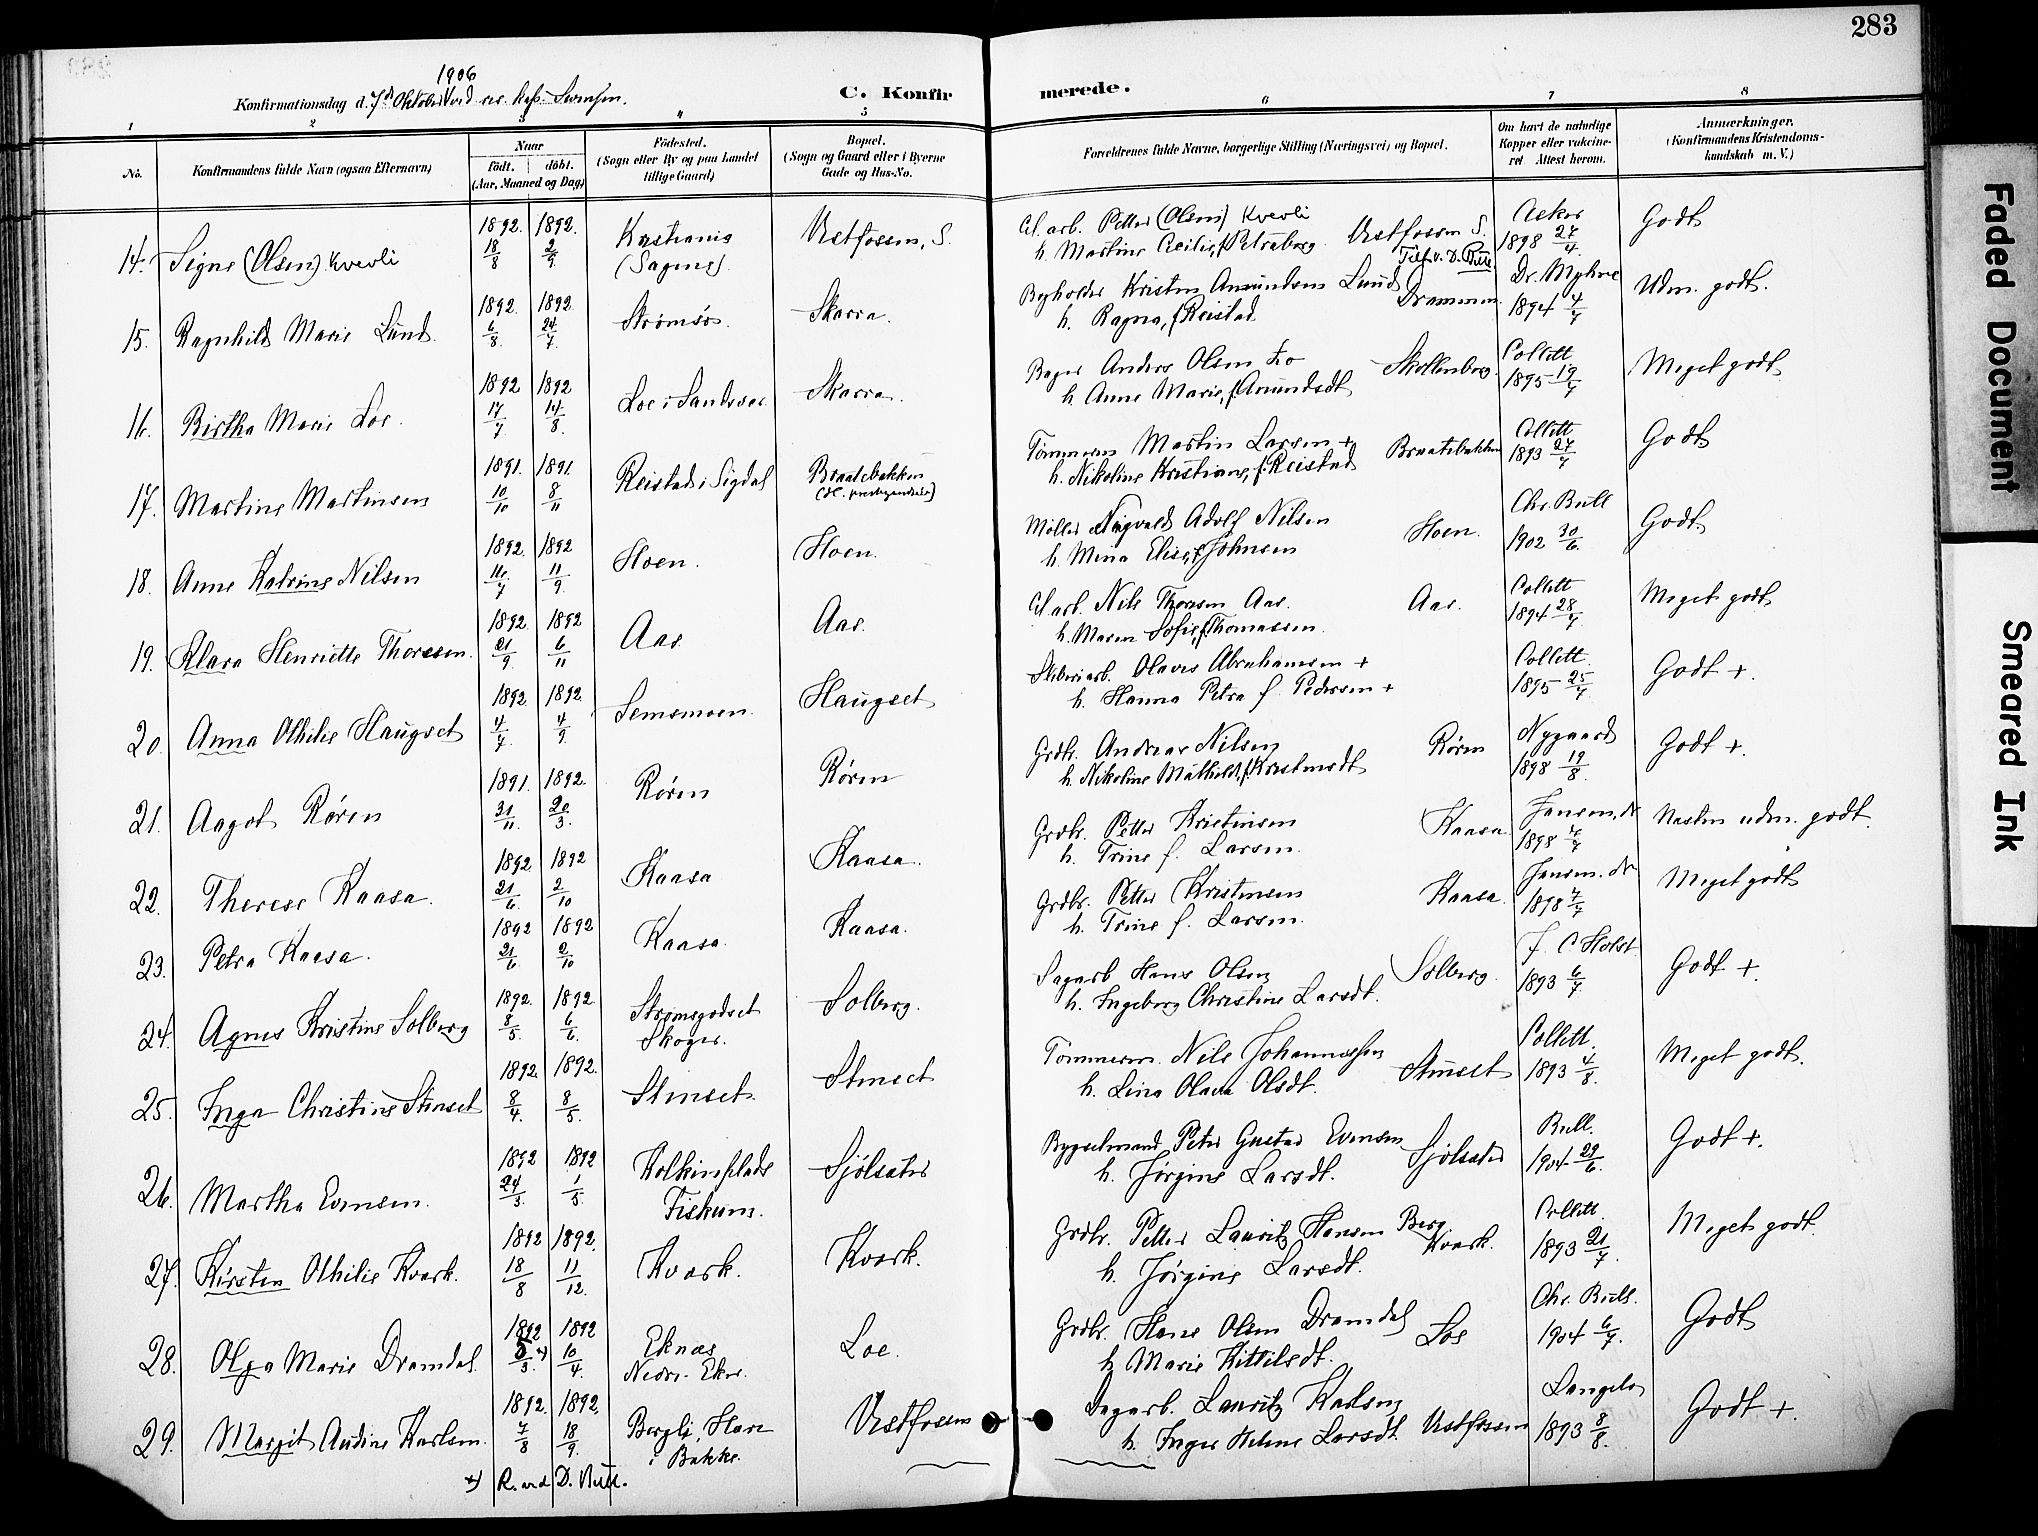 283
1906
Konfirmationsdag d. 7de Oktober ved res. kap. Svensen.
C. Konfirmerede.
1 2 3 4 5 6 7 8
No.
Konfirmandens fulde Navn (ogsaa Efternavn)
Naar
födt. döbt.
(Aar, Maaned og Dag)
Födested.
(Sogn eller By og paa Landet
tillige Gaard)
Bopæl.
(Sogn og Gaard eller i Byerne
Gade og Hus-No.
Forældrenes fulde Navne, borgerlige Stilling (Næringsvei) og Bopæl.
Om havt de naturlige
Kopper eller vaksine-
ret. Attest herom.
Anmærkninger.
(Konfirmandens Kristendoms-
kundskab m. V.)
14. Signe (Olsen) Kverli 1892. 18/8 1892. 2/9 Kristiania (Sagene). Vestfossen, S.
Cl. arb. Petter (Olsen) Kverli
h. Martine Cecilie, f. Petraborg Vestfossen S. Aker 1898 27/4. Godt
Tilf. v. D. Bull
15. Ragnhild Marie Lund. 1892. 6/8. 1892. 24/7. Strømsø. Skarra.
Bryholder Kristen Amundsen Lund
h. Ragna, f. Reistad Drammen. Dr. Myhre 1894 4/7 Udm. godt.
16. Birtha Marie Loe. 1892 17/7 1892 14/8. Loe i Sandsvær Skarra.
Bager Anders Olsen Lo
h. Anne Marie, f. Amundsdt Skollenborg. Collett 1895 19/7 Meget godt
17. Martine Martinsen 1891. 10/10 1891. 8/11 Reistad i Sigdal Braatebakken
Tømmerm Martin Larsen +
h. Nikoline Kristiane, f. Reistad Braatebakken Collett 1893 27/7 Godt
18. Anne Katrine Nilsen 1892. 16/7 1892 11/9. Hoen. Hoen.
Møller Sigvald Adolf Nilsen
h. Mina Elise, f. Johnsen Hoen. Chr. Bull 1902 30/6. Godt.
19. Klara Henriette Thoresen. 1892. 21/9 1892 6/11 Aas. Aas.
Cl. arb. Nils Thoresen Aas.
h. Maren Sofie, f. Thomassen. Aas. Collett 1894 28/7 Meget godt
20. Anna Othilie Haugset 1892 4/7. 1892. 4/9. Semsmoen. Haugset
Sliberiarb. Olaves Abrahamsen +
h. Hanna Petra f. Pedersen + Collett. 1895 25/7 Godt +.
21. Aagot Røren 1891. 31/11. 1892. 20/3. Røren Røren
Grdbr. Andreas Nilsen
h. Nikoline Mathilde, f. Kristensdt Røren Nygaard 1898 19/8. Godt +.
22. Therese Kaasa. 1892 21/6 1892 2/10 Kaasa Kaasa.
Grdbr. Petter Kristensen
h. Trine f. Larsen. Kaasa Jensen, dr 1898 7/7 Næsten udm. godt.
23. Petra Kaasa. 1892 21/6 1892 2/10 Kaasa. Kaasa.
Grdbr. Petter Kristensen
h. Trine f. Larsen. Kaasa. Jensen. dr 1898 7/7 Meget godt
24. Agnes Kristine Solberg 1892. 8/5 1892 6/6. Strømsgodset Skoger. Solberg.
Sagarb Hans Olsen
h. Ingeborg Christine Larsdt. Solberg. J. C Holst 1893 6/7 Godt +.
25. Inga Christine Stenset 1892. 8/4. 1892. 8/5. Stenset. Stenset
Tømmerm. Nils Johannessen
h. Lina Olava Olsdt. Stenset Collett. 1893 4/8. Meget godt.
26. Martha Evensen. 1892 24/3. 1892 1/5. Kolkinsplads Fiskum. Sjølsæter
Bygselmand Peter Gustav Evensen
h. Jørgine Larsdt. Sjølsæter Bull. 1904 29/6. Godt +.
27. Kirsten Othilie Kvark. 1892 18/8 1892. 11/12. Kvark. Kvark.
Grdbr. Petter Lauritz Hansen Berg
h. Jørgine Larsdt. Kvark. Collett. 1893 21/7. Meget godt.
28. Olga Marie Dramdal. 1892 5/3. x) 1892 10/4. Eknæs Nedre-Eker. Loe.
Grdbr. Hans Olsen Dramdal
h. Marie Kittilsdt. Loe Chr. Bull. 1904 6/7. Godt
29. Margit Andine Karlsen. 1892. 7/8 1892. 18/9. Bergli, Hare i Bakke. Vestfossen
Dagarb. Lauritz Karlsen
h. Inger Helene Larsdt. Vestfossen Langeln 1893 8/8. Godt +.
x) R. ved D. Bull.
Faded Document
Smeared Ink